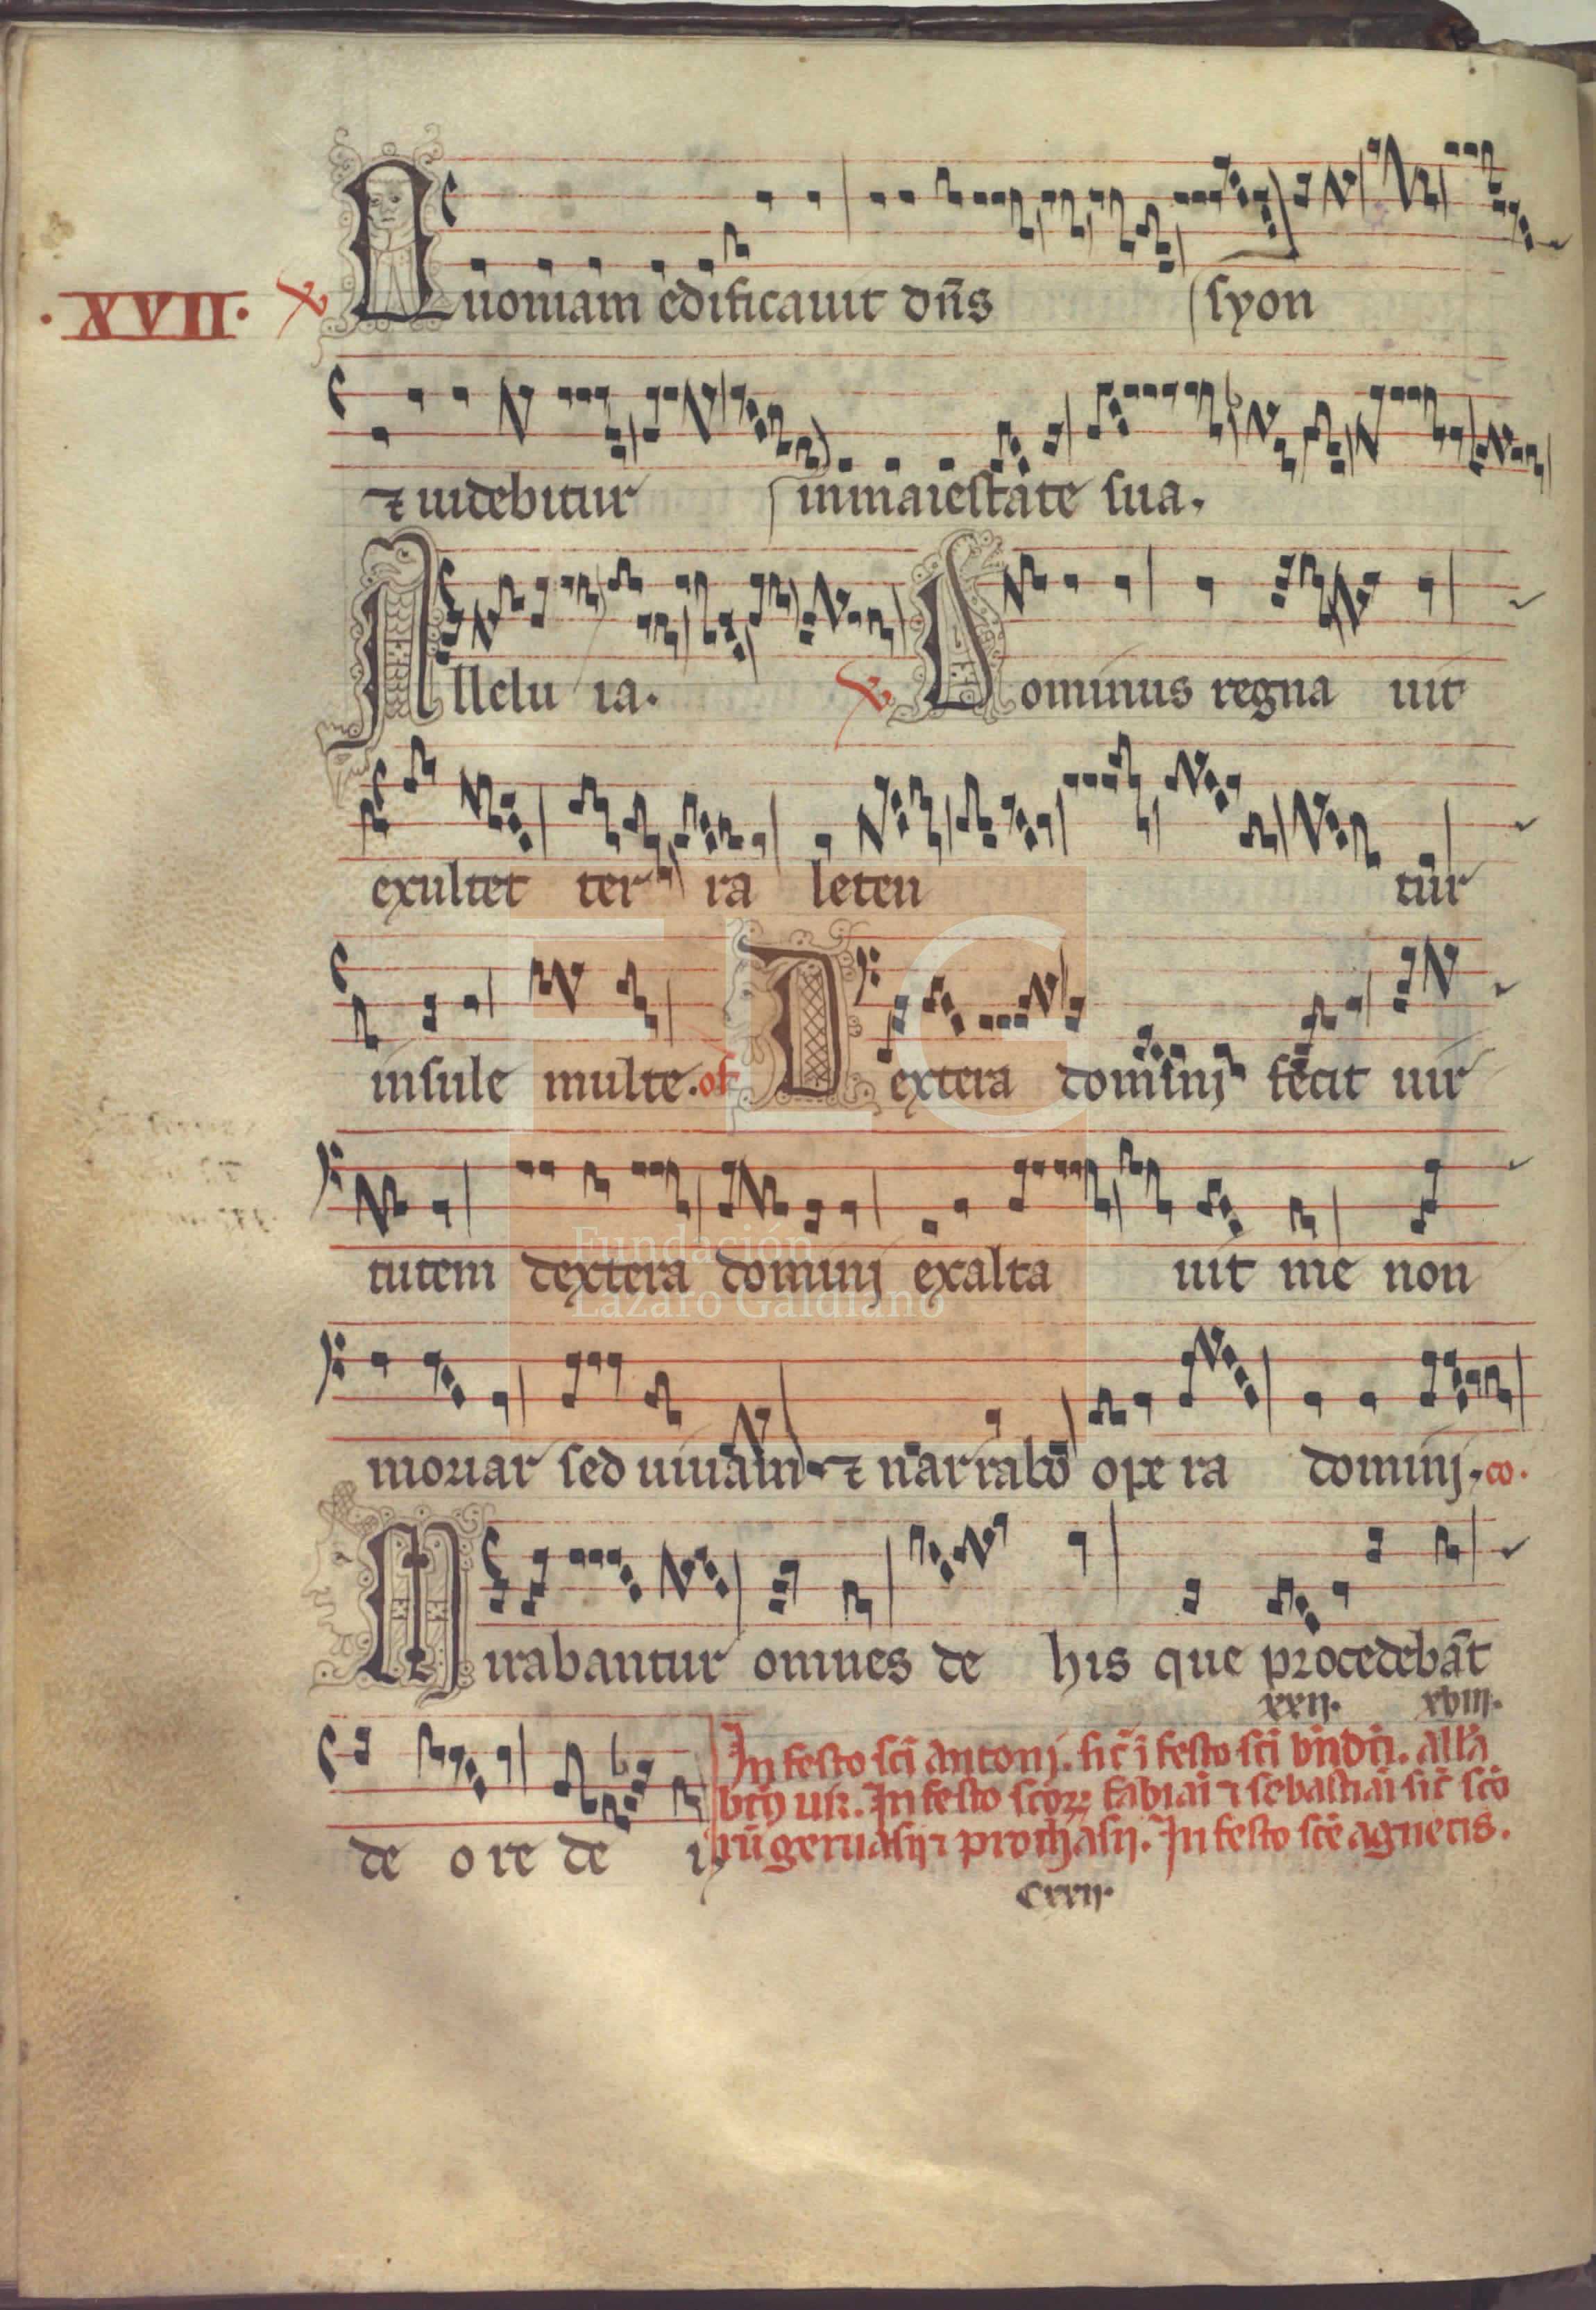 ·XVII· ℣ Quoniam edificauit dn̄s syon
⁊ uidebitur inmaiestate sua.
Allelu ia. ℣ Dominus regna uit
exultet ter ra leten tur
insule multe. of Dextera dominj fecit uir
tutem dextera dominj exalta uit me non
moriar sed uiuam ⁊ narrabo opera dominj. co.
Mirabantur omnes de his que procedebāt
xxij. xviij.
de ore de i
In festo sc̄i antonj. sic̄ ī festo sc̄i bn̄dc̄i. all'a
In festo scōꝝ fabiāi ⁊ sebastiāi sic̄ scō
rū geruasij ⁊ prothasij. In festo sc̄e agnetis.
cxxij.
Fundación
Lázaro Galdiano
FLG